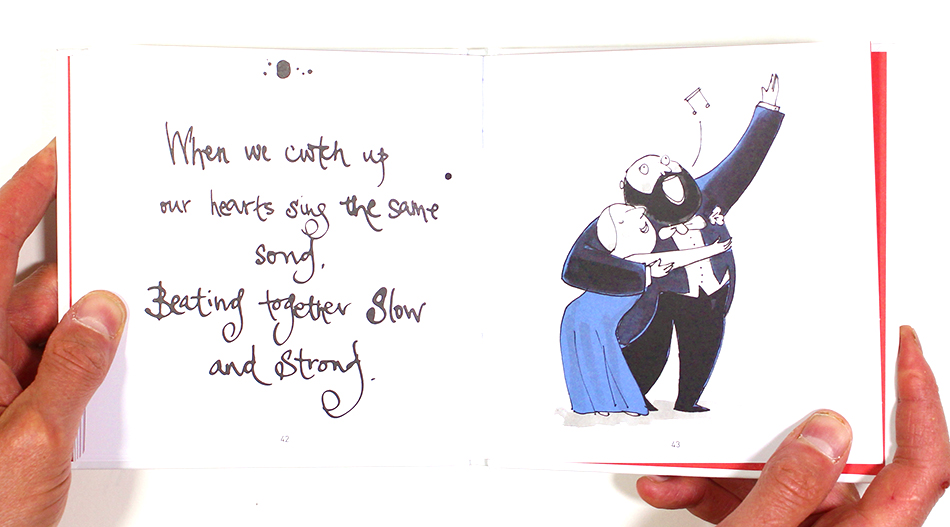 When we cwtch up
our hearts sing the same
song.
Beating together slow
and strong.
42
43